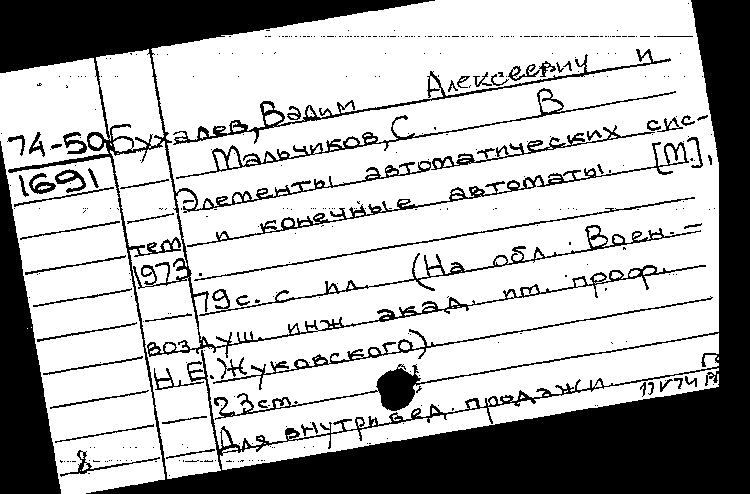 74-50 Бухалев, Вадим Алексеевич и
1691 Мальчиков, С. В
Элементы автоматических сис-
тем и конечные автоматы. [М.],
1973.
79 с. с ил. (На обл.: Воен.-
воздуш. инж. акад. им. проф.
Н.Е. Жуковского).
23 см.
Для внутривед. продажи.
8